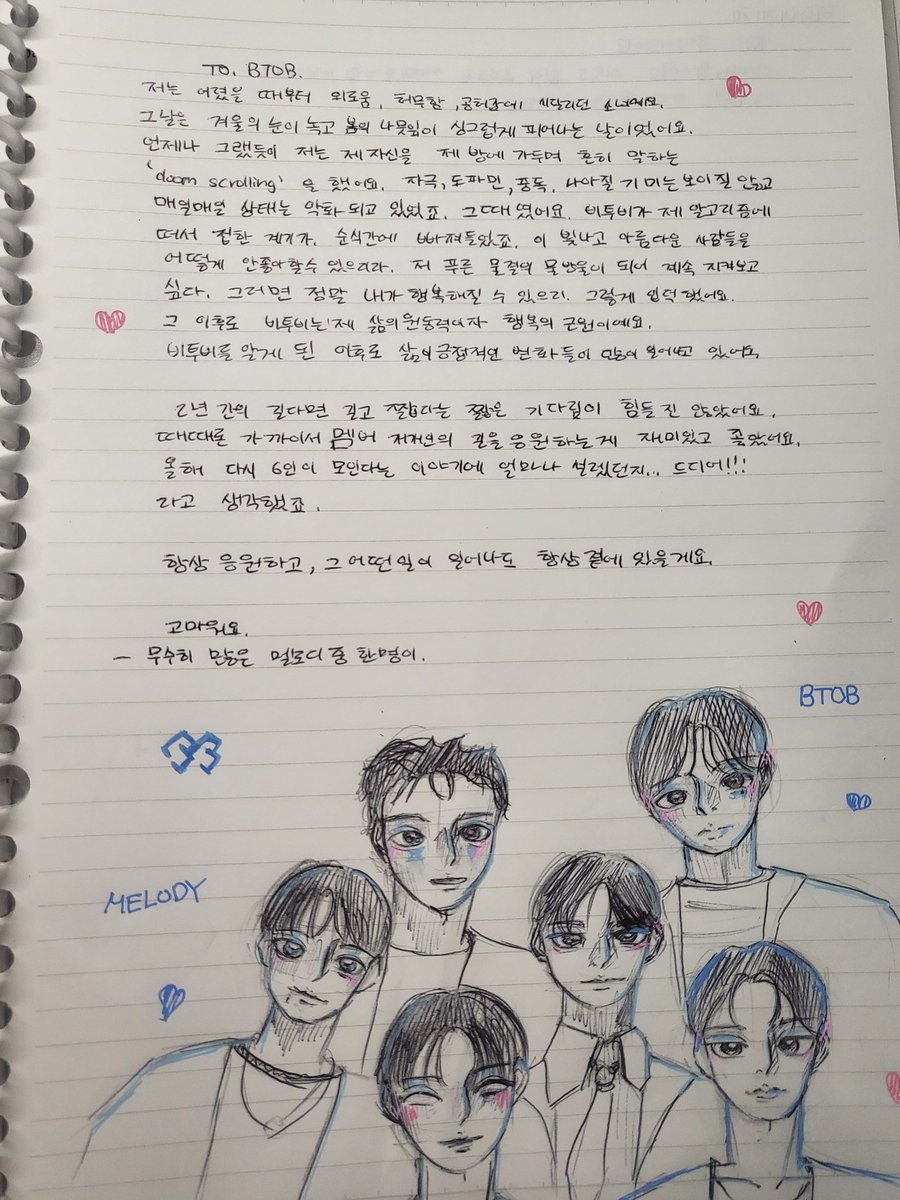 TO. BTOB.
저는 어렸을 때부터 외로움, 허무함, 공허함에 시달리던 소녀예요.
그날은 겨울의 눈이 녹고 봄의 나뭇잎이 싱그럽게 피어나는 날이었어요.
언제나 그랬듯이 저는 제 자신을 제 방에 가두며 흔히 말하는
'doom scrolling' 을 했어요. 자극, 도파민, 중독, 나아질 기미는 보이질 않고
매일매일 상태는 악화 되고 있었죠. 그때였어요. 비투비가 제 알고리즘에
떠서 접한 계기가. 순식간에 빠져들었죠. 이 빛나고 아름다운 사람들을
어떻게 안좋아할수 있으리라. 저 푸른 물결의 물방울이 되어 계속 지켜보고
싶다. 그러면 정말 내가 행복해질 수 있으리. 그렇게 입덕했어요.
그 이후로 비투비는 제 삶의 원동력이자 행복의 근원이예요.
비투비를 알게 된 이후로 삶의 긍정적인 변화들이 많이 일어나고 있어요
2년 간의 길다면 길고 짧다는 짧은 기다림이 힘들진 않았어요.
때때로 가까이서 멤버 저개인의 길을 응원하는게 재미있고 좋았어요.
올해 다시 6인이 모인다는 이야기에 얼마나 설렜던지... 드디어!!!
라고 생각했죠.
항상 응원하고, 그 어떤일이 일어나도 항상 곁에 있을게요.
고마워요.
- 무수히 많은 멜로디 중 한명이.
BTOB
MELODY